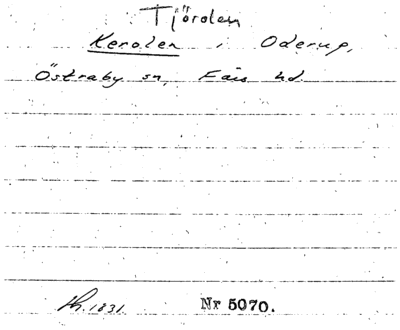 Tjörolen
Kerolen i Oderup,
Östraby sn, Färs hd.
Th. 1831. Nr 5070.